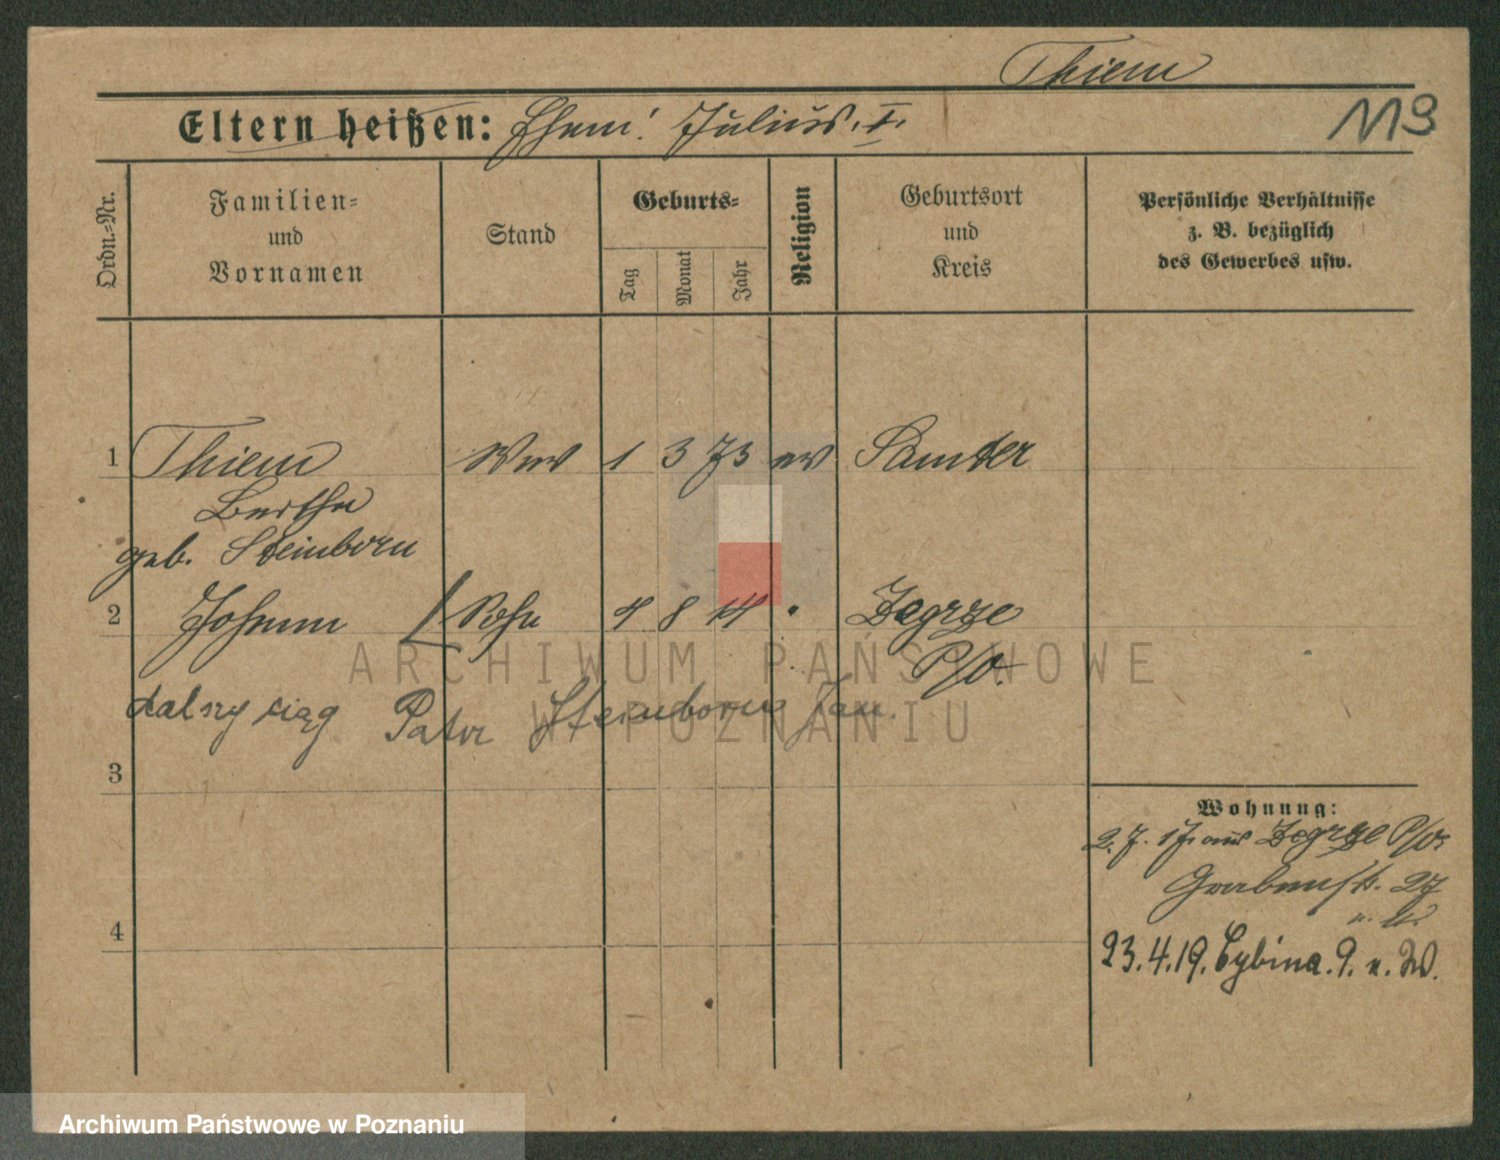 Thiem
Eltern heißen: Ehem! Julius. I.
113
Ordn.-Nr.
Familien-
und
Vornamen
Stand
Geburts-
Tag
Monat
Jahr
Religion
Geburtsort
und
Kreis
Persönliche Verhältnisse
z. B. bezüglich
des Gewerbes usw.
1 Thiem Wwe 1 3 73 ev Samter
Bertha
geb. Steinborn
2 Johann Sohn 4 8 14 " Zegrze
P/O.
dalszy ciąg Patrz Steinborn Jan.
3
Wohnung:
2. 7. 17. aus Zegrze P/O.
Grabenstr. 27
4
23.4.19. Cybina. 9. n. W.
ARCHIWUM PAŃSTWOWE
W POZNANIU
Archiwum Państwowe w Poznaniu